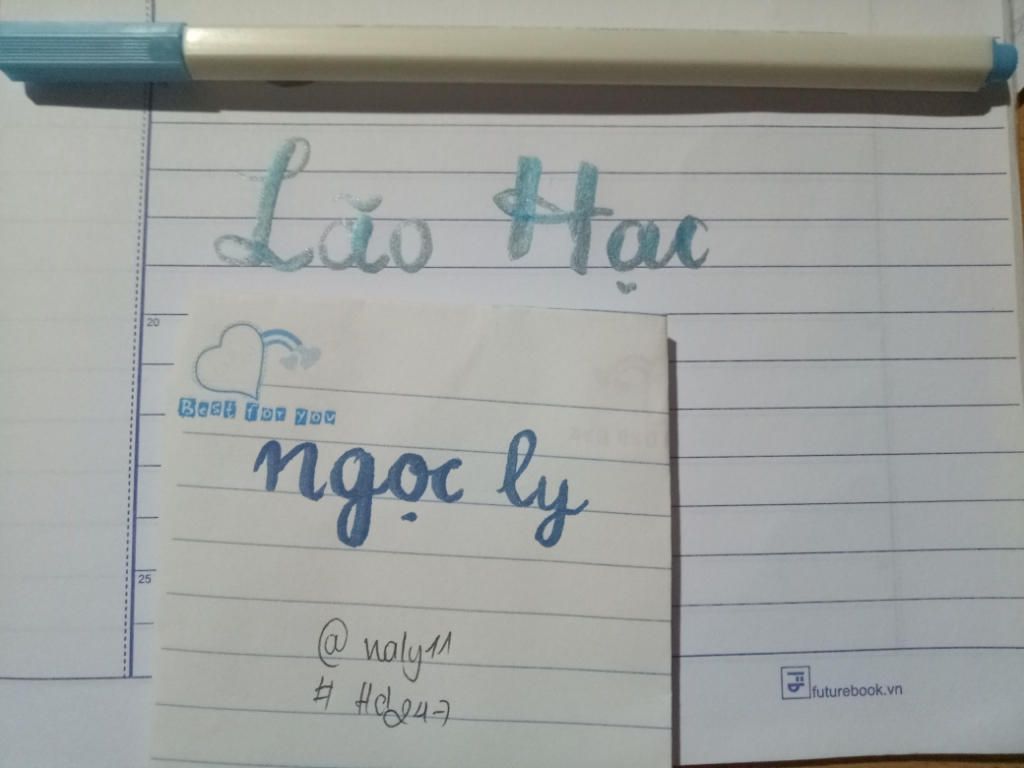 Lão Hạc
20
Best for you
ngọc ly
25
@ naly11
# Hd247
futurebook.vn